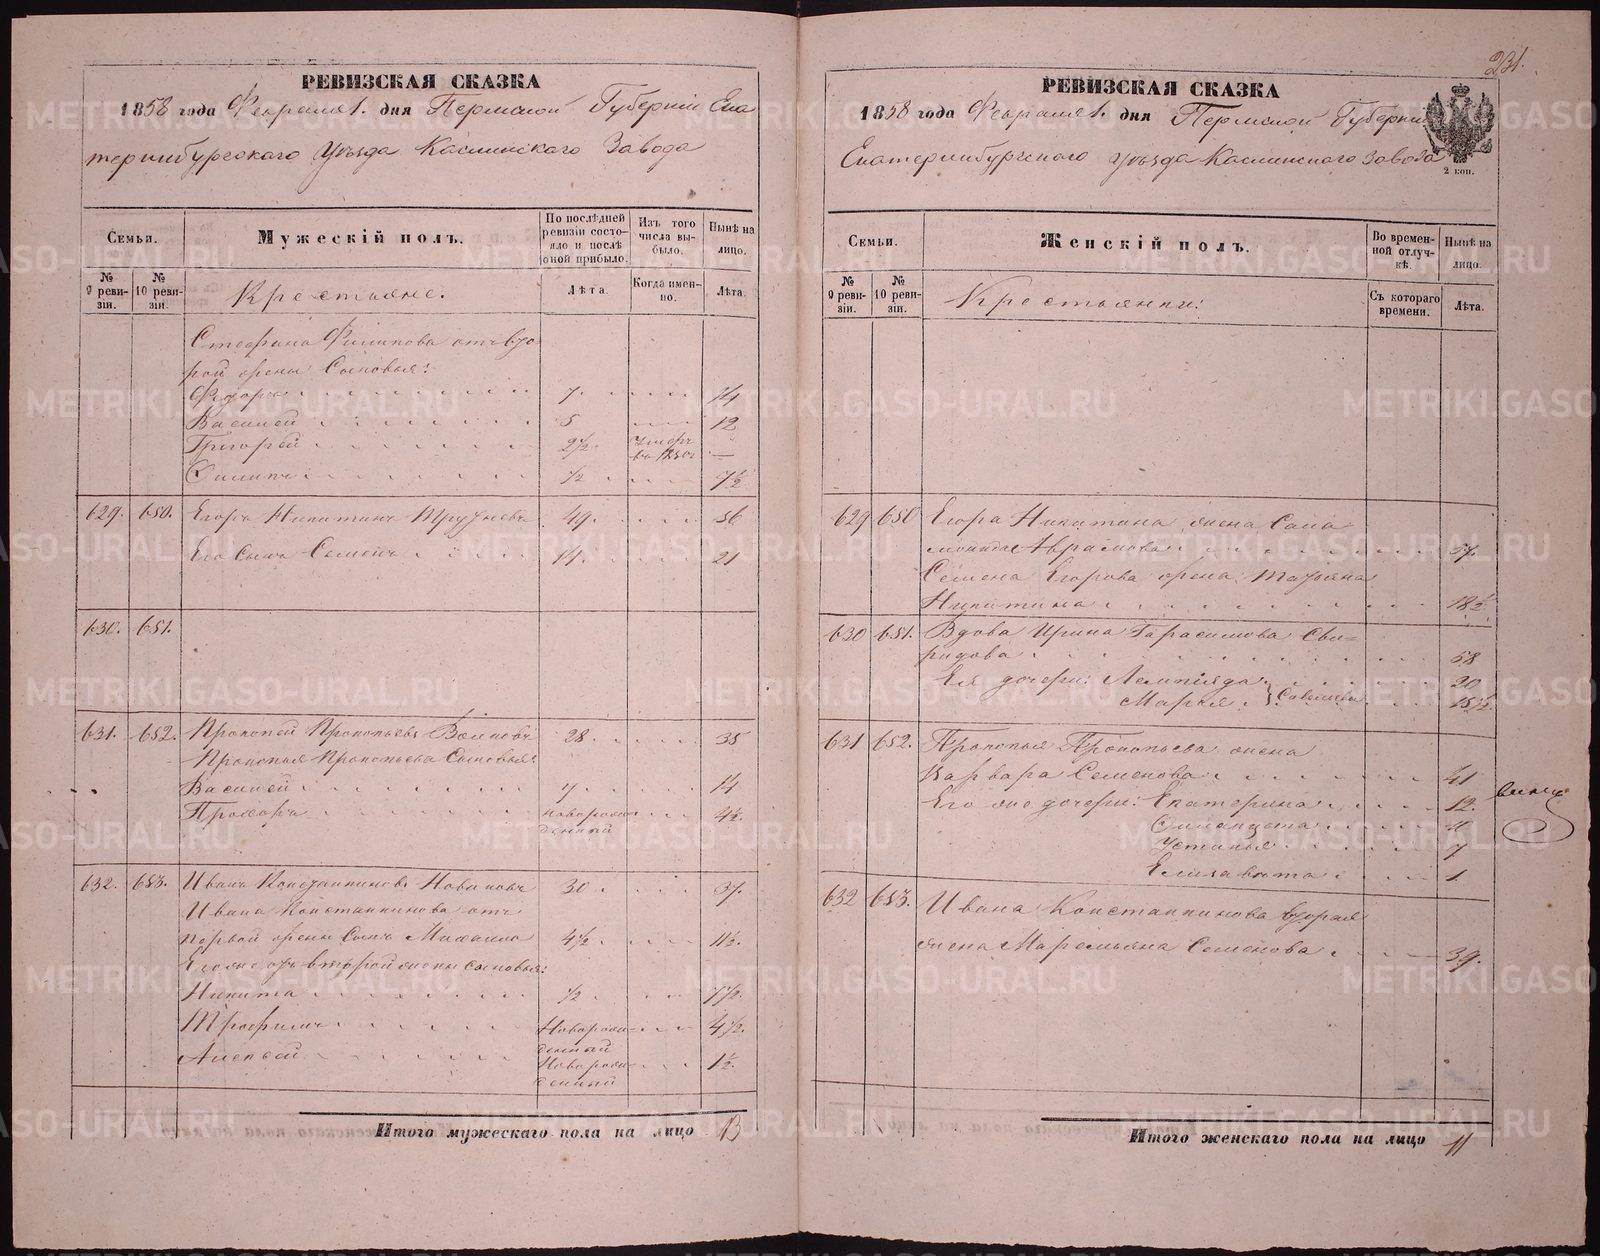 РЕВИЗСКАЯ СКАЗКА
1858 года Февраля 1. дня Пермской Губерніи Ека
теринбургскаго Уѣзда Каслинскаго Завода
Семьи.
Мужескій полъ.
По послѣдней ревизіи состояло и послѣ оной прибыло.
Изъ того числа выбыло.
Нынѣ на лицо.
№ 9 ревизіи.
№ 10 ревизіи.
Крестьяне.
Лѣта.
Когда именно.
Лѣта.
Стефана Филипова отъ вто
рой жены Сыновья:
Федоръ 7. 14
Василей 5 12
Григорей 2½ Умеръ въ 1850г —
Филипъ ½ 7½
629. 650. Егоръ Никитинъ 49. 56
Его Сынъ Семенъ 14. 21
630. 651.
631. 652. Прокопей Прокопьевъ 28 35
Прокопья Прокопьева Сыновья:
Василей 7 14
Прохоръ новорожденный 4½.
632. 653. Иванъ Константиновъ 30 37.
Ивана Константинова отъ
первой жены Сынъ Михайло 4½ 11½.
Его же отъ второй жены сыновья:
Никита ½ 7½.
Трофимъ Новорожденный 4½.
Алексей Новорожденный 1½.
Итого мужескаго пола на лицо 13
231.
РЕВИЗСКАЯ СКАЗКА
1858 года Февраля 1. дня Пермской Губерніи
Екатеринбургскаго Уѣзда Каслинскаго Завода
2 коп.
Семьи.
Женскій полъ.
Во временной отлучкѣ.
Нынѣ на лицо.
№ 9 ревизіи.
№ 10 ревизіи.
Крестьянки:
Съ котораго времени.
Лѣта.
629 650 Егора Никитина жена Соло
монида Аврамова 57.
Семена Егорова жена Татьяна
Никитина 18½
630 651. Вдова Ирина Гарасимова Сви-
ридова 58
Ея дочери: Лампіяда 20
Марья Савельева 15½
631 652. Прокопья Прокопьева жена
Варвара Семенова 41
Его же дочери: Екатерина 12.
Устинья 7
Елизавета 1
632 653. Ивана Константинова вторая
жена Маремьяна Семенова 39.
Итого женскаго пола на лицо 11
METRIKI.GASO-URAL.RU